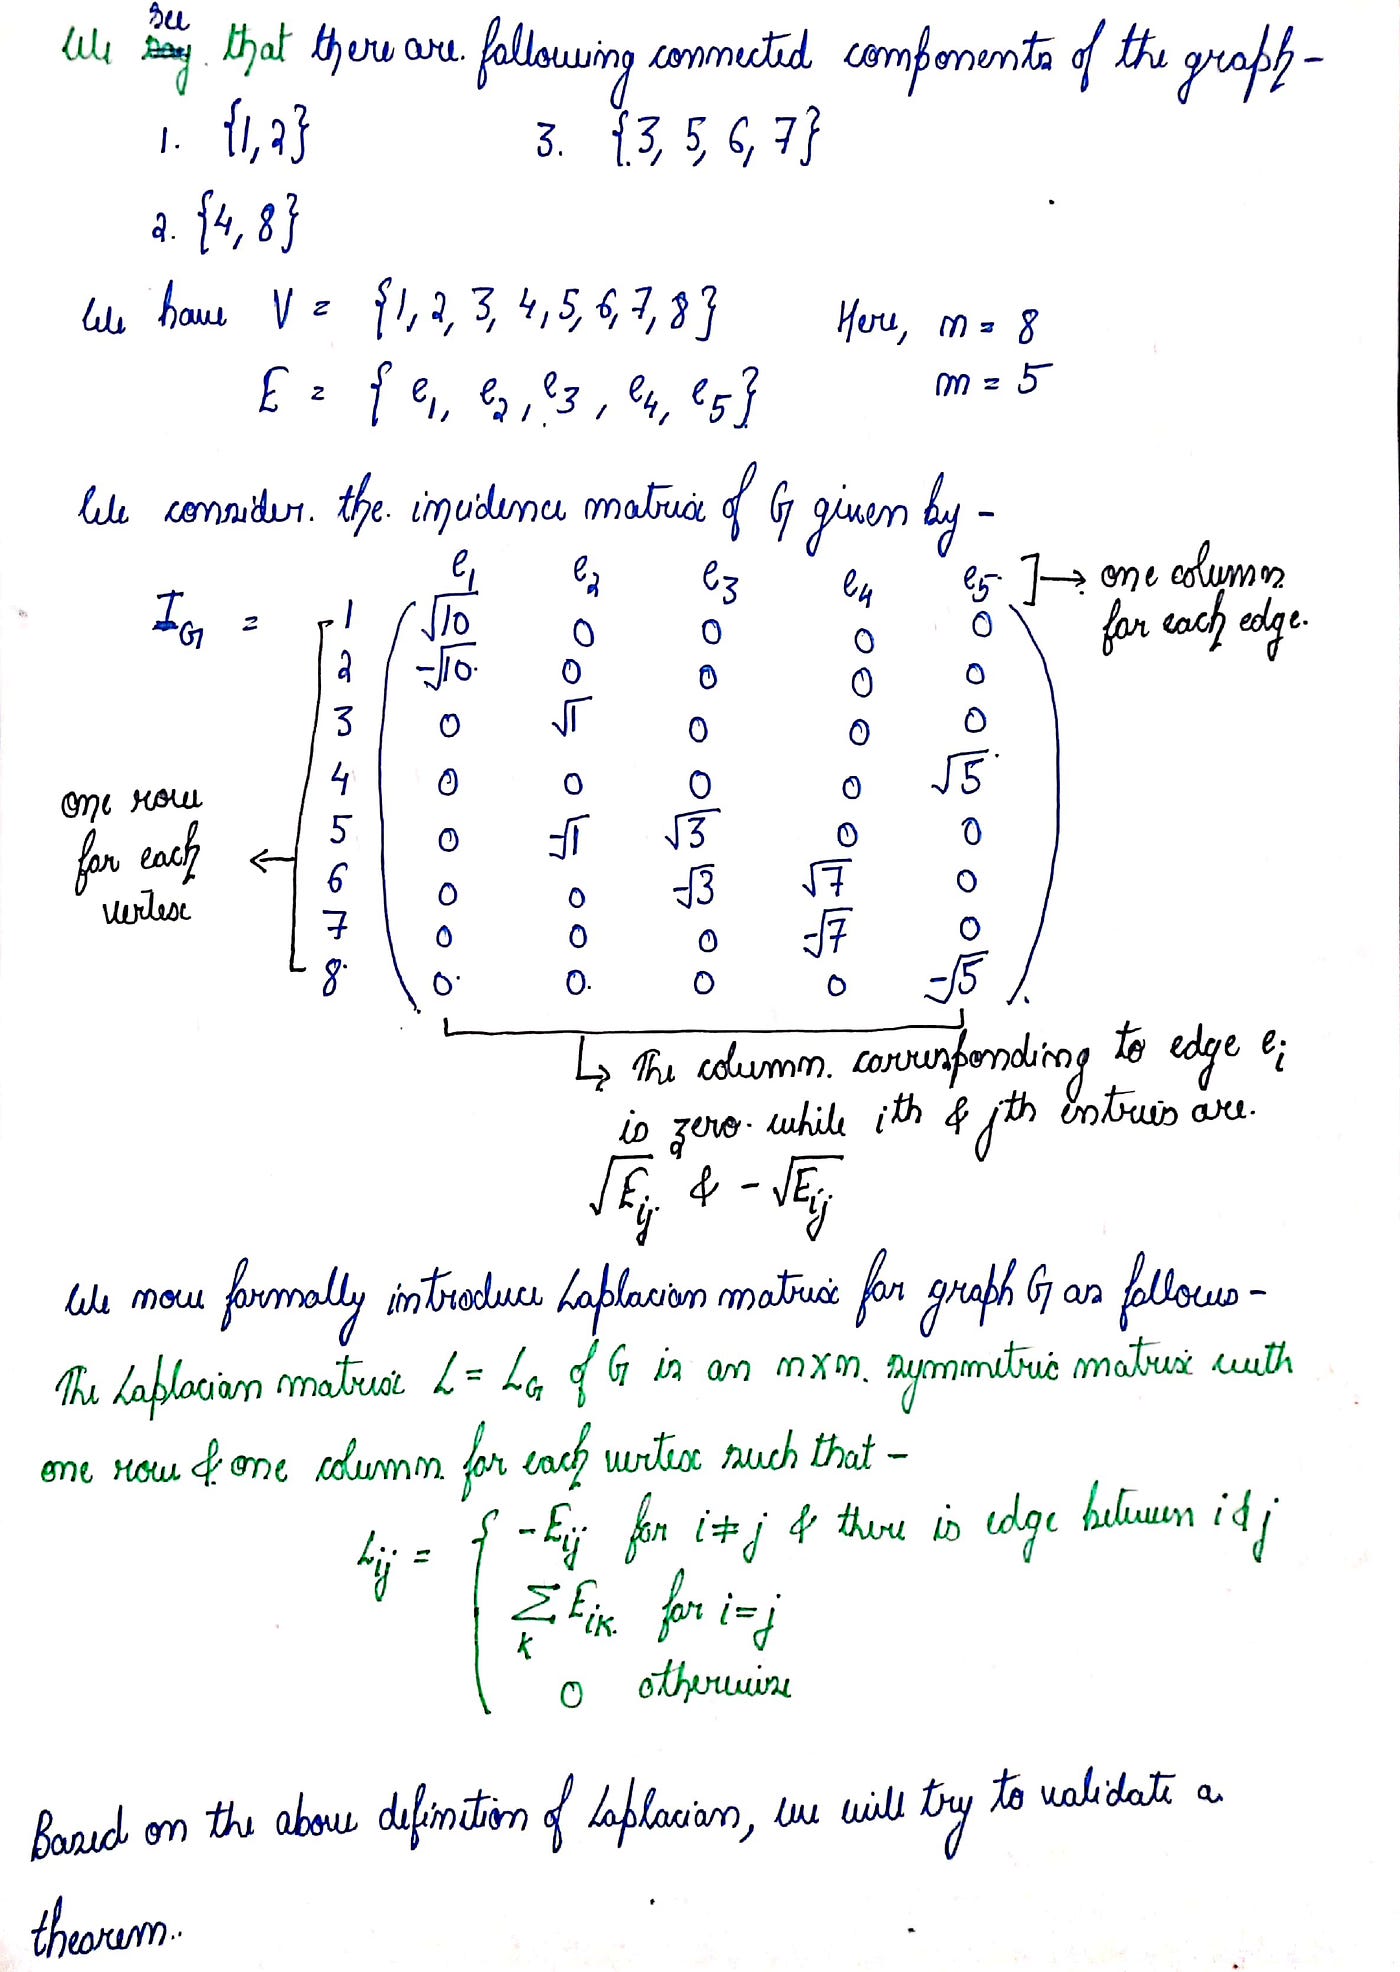 We see that there are following connected components of the graph -
1. {1, 2} 3. {3, 5, 6, 7}
2. {4, 8}
We have V = {1, 2, 3, 4, 5, 6, 7, 8} Here, n = 8
E = { e₁, e₂, e₃, e₄, e₅} m = 5
We consider the incidence matrix of G given by -
e₁ e₂ e₃ e₄ e₅ ]→ one column
for each edge.
I_G = 1 √10 0 0 0 0
2 -√10 0 0 0 0
3 0 √1 0 0 0
4 0 0 0 0 √5
5 0 -√1 √3 0 0
6 0 0 -√3 √7 0
7 0 0 0 -√7 0
8 0 0 0 0 -√5
one row
for each ←
vertex
↳ The column corresponding to edge eᵢ
is zero while ith & jth entries are
√E_ij & -√E_ij
We now formally introduce Laplacian matrix for graph G as follows -
The Laplacian matrix L = L_G of G is an n×n symmetric matrix with
one row & one column for each vertex such that -
L_ij = { -E_ij for i ≠ j & there is edge between i & j
∑_k E_ik for i = j
0 otherwise
Based on the above definition of Laplacian, we will try to validate a
theorem.